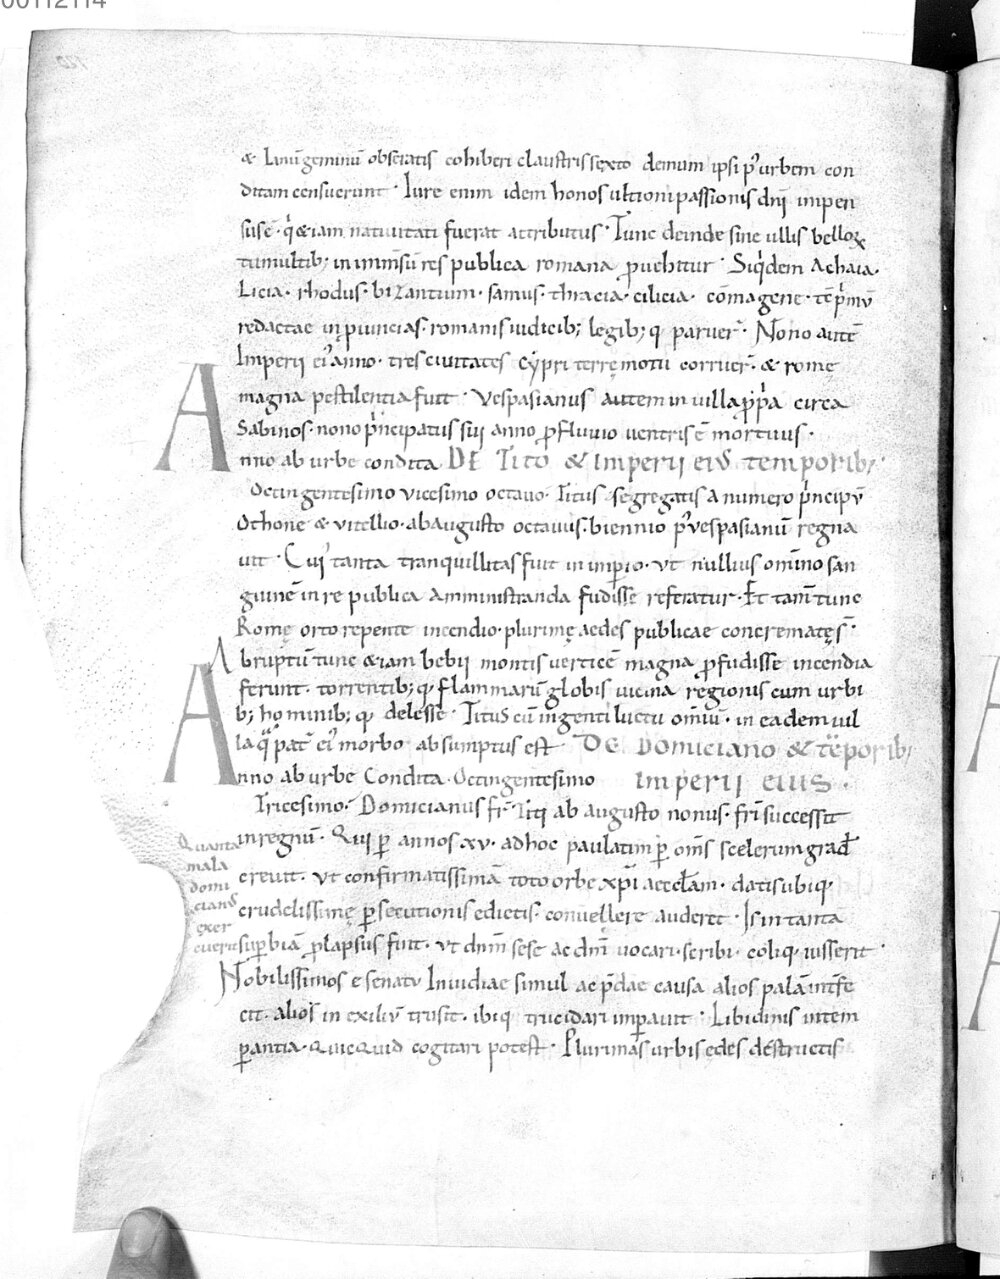 00112114
& Ianū geminū obseratis cohiberi claustris sexto demum ipsi p' urbem con
ditam censuerunt · Iure enim idem honos ultioni passionis dñi impen
sus ē · q' &iam nativitati fuerat attributus · Tunc deinde sine ullis belloꝝ
tumultib; in inmensū res publica romana pvehitur · Siq'dem Achaia ·
Licia · rhodus · bizantium · samus · thracia · cilicia · cōmagene · tc̄ p'mū
redactae in pvincias · romanis iudicib; legib; q· paruer̄ · Nono autē
Imperii ei' anno · tres civitates cypri terrę motu corruer̄ · & romę
magna pestilentia fuit · Vespasianus autem in villa ppa circa
Sabinos · nono p'ncipatus sui anno pfluvio ventris ē mortuus ·
Anno ab urbe condita DE TITO & Imperii eius temporib;
Octingentesimo vicesimo octavo · Titus segregatis a numero p'ncipū
Othone & vitellio · ab augusto octavus · biennio p' vespasianū regna
vit · Cui' tanta tranquillitas fuit in imperio · ut nullius omīno san
guinē in re publica amministranda fudisse referatur · Et tam̄ tunc
Romę orto repente incendio · plurimę aedes publicae concrematęs̄ ·
Abruptū tunc &iam bebii montis verticē magna pfudisse incendia
ferunt · torrentib; q· flammarū globis vicina regionis cum urbi
b; hominib; q· delesse · Titus cū ingenti luctu omīū · in eadem vil
la q' pat̄ ei' morbo absumptus est DE Domiciano & tēporib;
Anno ab urbe Condita · Octingentesimo Imperii eius ·
Tricesimo · Domicianus fr̄ Titi ab augusto nonus · fr̄i successit
in regnū · Qui p annos xv · ad hoc paulatim p om̄s scelerum grad'
crevit · ut confirmatissimā toto orbe xp̄i aeccl̄am · datis ubiq·
crudelissimę psecutionis edictis · convellere auderet · Is in tantā
supbiā plapsus fuit · ut dn̄m sese ac dm̄ vocari · scribi · coliq· iusserit ·
Nobilissimos e senatu Invidiae simul ac p̄dae causa alios palā intfe
cit · alios in exiliū trusit · ibiq· trucidari impavit · Libidinis intem
pantia · quicquid cogitari potest · Plurimas urbis edes destructis
Quanta
mala
domi
cian'
exer
cuerit